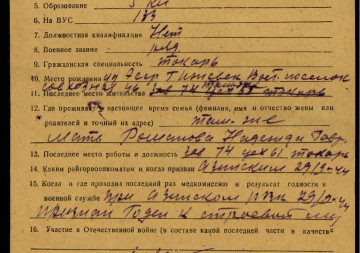 5. Образование 5 кл
6. На ВУС 133
7. Должностная квалификация Нет
8. Военное звание ряд
9. Гражданская специальность токарь
10. Место рождения Ижевск Вост. поселок
11. Последнее место жительства
12. Где проживает в настоящее время семья (фамилия, имя и отчество жены или
родителей и точный их адрес) там-же
Мать Романова Надежда Гавр.
13. Последнее место работы и должность зав 74 цех 61 токарь
14. Каким райгорвоенкоматом и когда призван Азинским 29/9-44
15. Когда и где проходил последний раз медкомиссию и результат годности к
военной службе при Азинском РВК 29/9-44
признан Годен к строевой служ
16. Участие в Отечественной войне (в составе какой последней части и в качестве